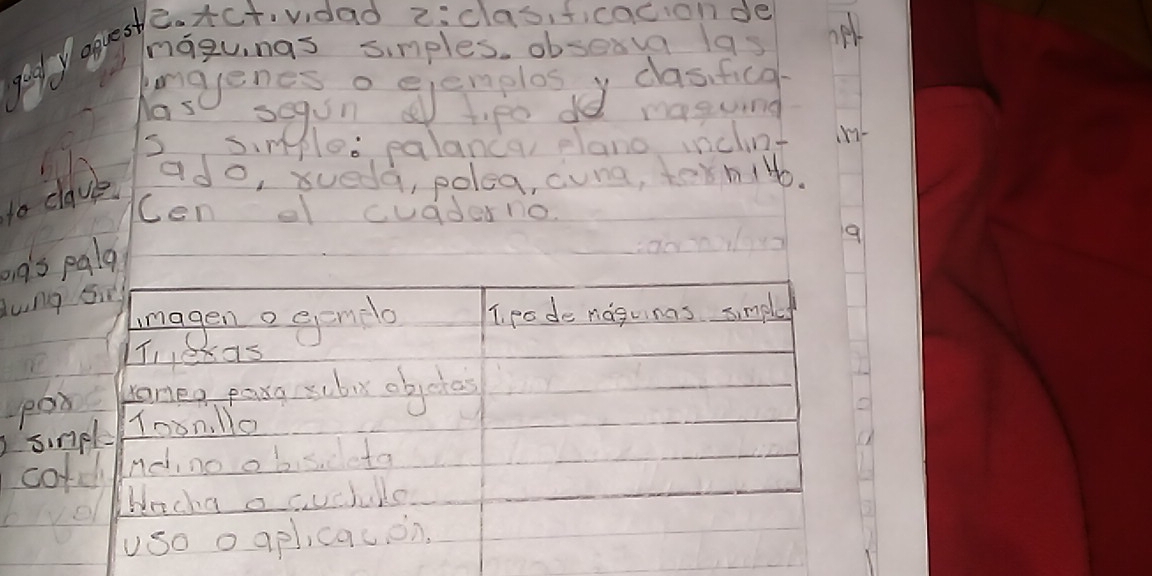 2. Actividad 2: clasificacion de
máquinas simples. observa las
imagenes o ejemplos y clasifica-
las segun el tipo de maquina
s simple: palanca, plano inclin-
ado, rueda, polea, cuna, tornillo.
Cen el cuaderno.
imagen o ejemplo Tipo de máquinas simple
Tijeras
rampa para subir objetos
Tornillo
Molino o bisicleta
Hacha o cuchillo
uso o aplicación.
gual y
to clave.
pala
por
simpl